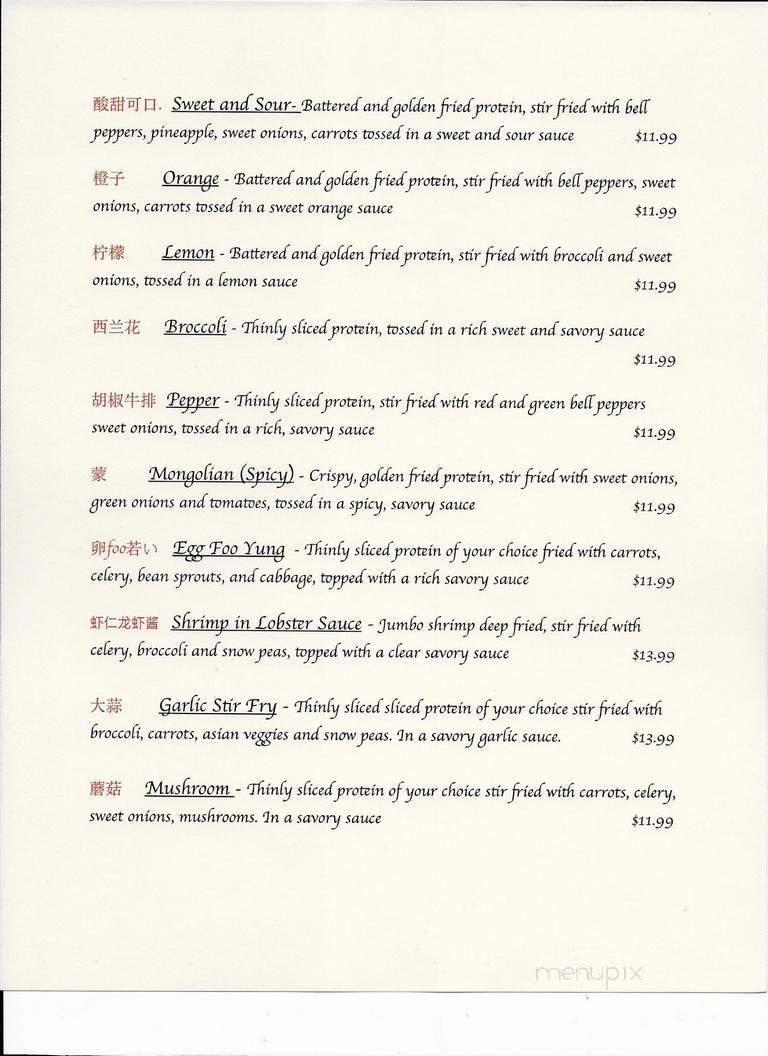 酸甜可口. Sweet and Sour- Battered and golden fried protein, stir fried with bell
peppers, pineapple, sweet onions, carrots tossed in a sweet and sour sauce $11.99
橙子 Orange - Battered and golden fried protein, stir fried with bell peppers, sweet
onions, carrots tossed in a sweet orange sauce $11.99
柠檬 Lemon - Battered and golden fried protein, stir fried with broccoli and sweet
onions, tossed in a lemon sauce $11.99
西兰花 Broccoli - Thinly sliced protein, tossed in a rich sweet and savory sauce
$11.99
胡椒牛排 Pepper - Thinly sliced protein, stir fried with red and green bell peppers
sweet onions, tossed in a rich, savory sauce $11.99
蒙 Mongolian (Spicy) - Crispy, golden fried protein, stir fried with sweet onions,
green onions and tomatoes, tossed in a spicy, savory sauce $11.99
卵foo若い Egg Foo Yung - Thinly sliced protein of your choice fried with carrots,
celery, bean sprouts, and cabbage, topped with a rich savory sauce $11.99
虾仁龙虾酱 Shrimp in Lobster Sauce - Jumbo shrimp deep fried, stir fried with
celery, broccoli and snow peas, topped with a clear savory sauce $13.99
大蒜 Garlic Stir Fry - Thinly sliced sliced protein of your choice stir fried with
broccoli, carrots, asian veggies and snow peas. In a savory garlic sauce. $13.99
蘑菇 Mushroom - Thinly sliced protein of your choice stir fried with carrots, celery,
sweet onions, mushrooms. In a savory sauce $11.99
menupix